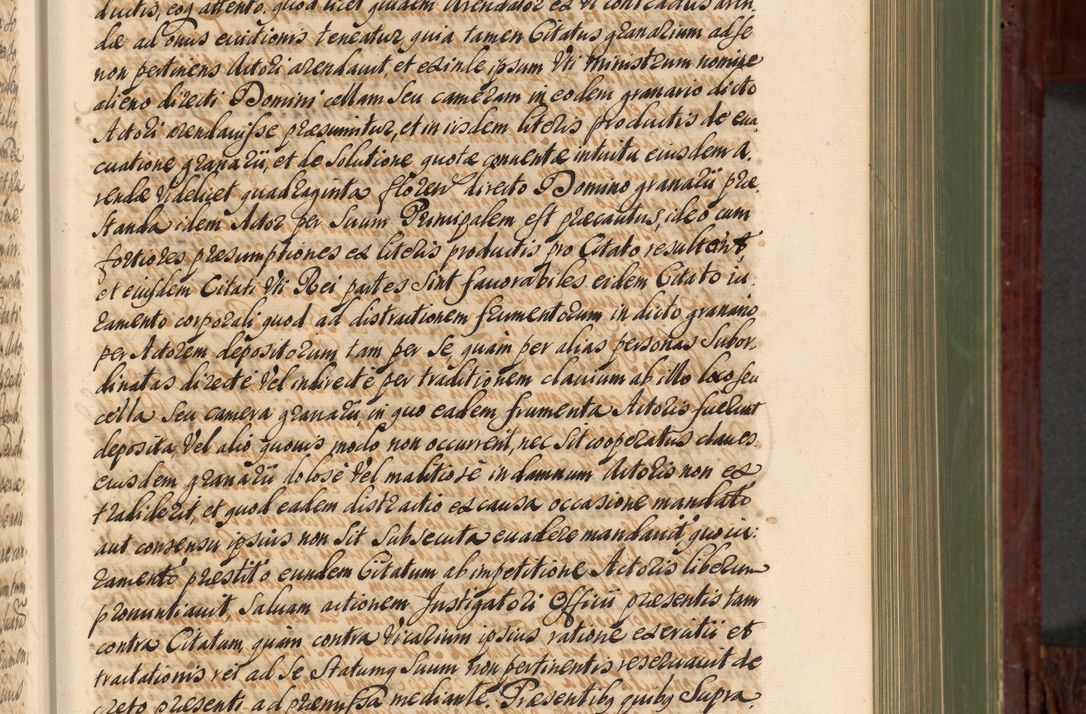 ductis, eoq attento, quod licet quidem Arendator ex vi contractus aren
dæ ad onus evitionis teneatur, quia tamen Citatus granarium ad se
non pertinens Actori arendavit, et exinde ipsum Vti Ministrum nomine
alieno directi Domini cellam seu cameram in eodem granario dicto
Actori arendavisse præsumitur, et in iisdem literis productis de eva
cuatione granarii, et de solutione quotæ conventæ intuitu eiusdem A.
rendæ videlicet quadraginta floren directo Domino granarii præ.
standa idem Actor per suum Principalem est præcautus, ideo cum
fortiores præsumptiones ex literis productis pro Citato resultent,
et eiusdem Citati Vti Rei partes sint favorabiles eidem Citato iu.
ramento corporali quod ad distractionem frumentorum in dicto granario
per Actorem depositorum tam per se, quam per alias personas subor.
dinatas directe vel indirecte per traditionem clavium ab illo loco seu
cella seu camera granarii, in quo eadem frumenta Actoris fuerunt
deposita, vel alio quovis modo non occurrerit, nec sit cooperatus claves
eiusdem granarii dolose vel malitiose in damnum Actoris non ex
tradiderit, et quod eadem distractio ex causa occasione mandato
aut consensu ipsius non sit subsecuta evadere mandavit, quo iu:
ramento præstito eundem Citatum ab impetitione Actoris liberum
pronuntiavit, salvam actionem Instigatori Officii præsentis tam
contra Citatum, quam contra Vicarium ipsius ratione exercitii et
tractationis rei ad se statumq suum non pertinentis reservavit de
creto præsenti ad præmissa mediante. Præsentibq quibq supra.